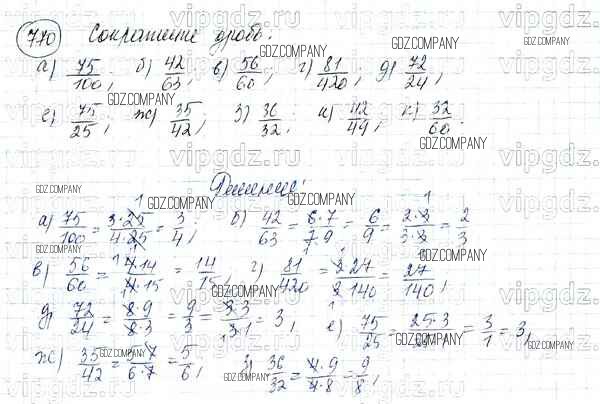 770 Сократите дробь:
а) 75/100; б) 42/63; в) 56/60; г) 81/420; д) 72/24;
е) 75/25; ж) 35/42; з) 36/32; и) 42/49; к) 32/60.
Решение:
а) 75/100 = 3·25/4·25 = 3/4; б) 42/63 = 6·7/7·9 = 6/9 = 2·3/3·3 = 2/3
в) 56/60 = 4·14/4·15 = 14/15; г) 81/420 = 3·27/3·140 = 27/140;
д) 72/24 = 8·9/8·3 = 9/3 = 3·3/3·1 = 3, е) 75/25 = 25·3/25·1 = 3/1 = 3,
ж) 35/42 = 5·7/6·7 = 5/6, з) 36/32 = 4·9/4·8 = 9/8,
vipgdz.ru
GDZ.COMPANY